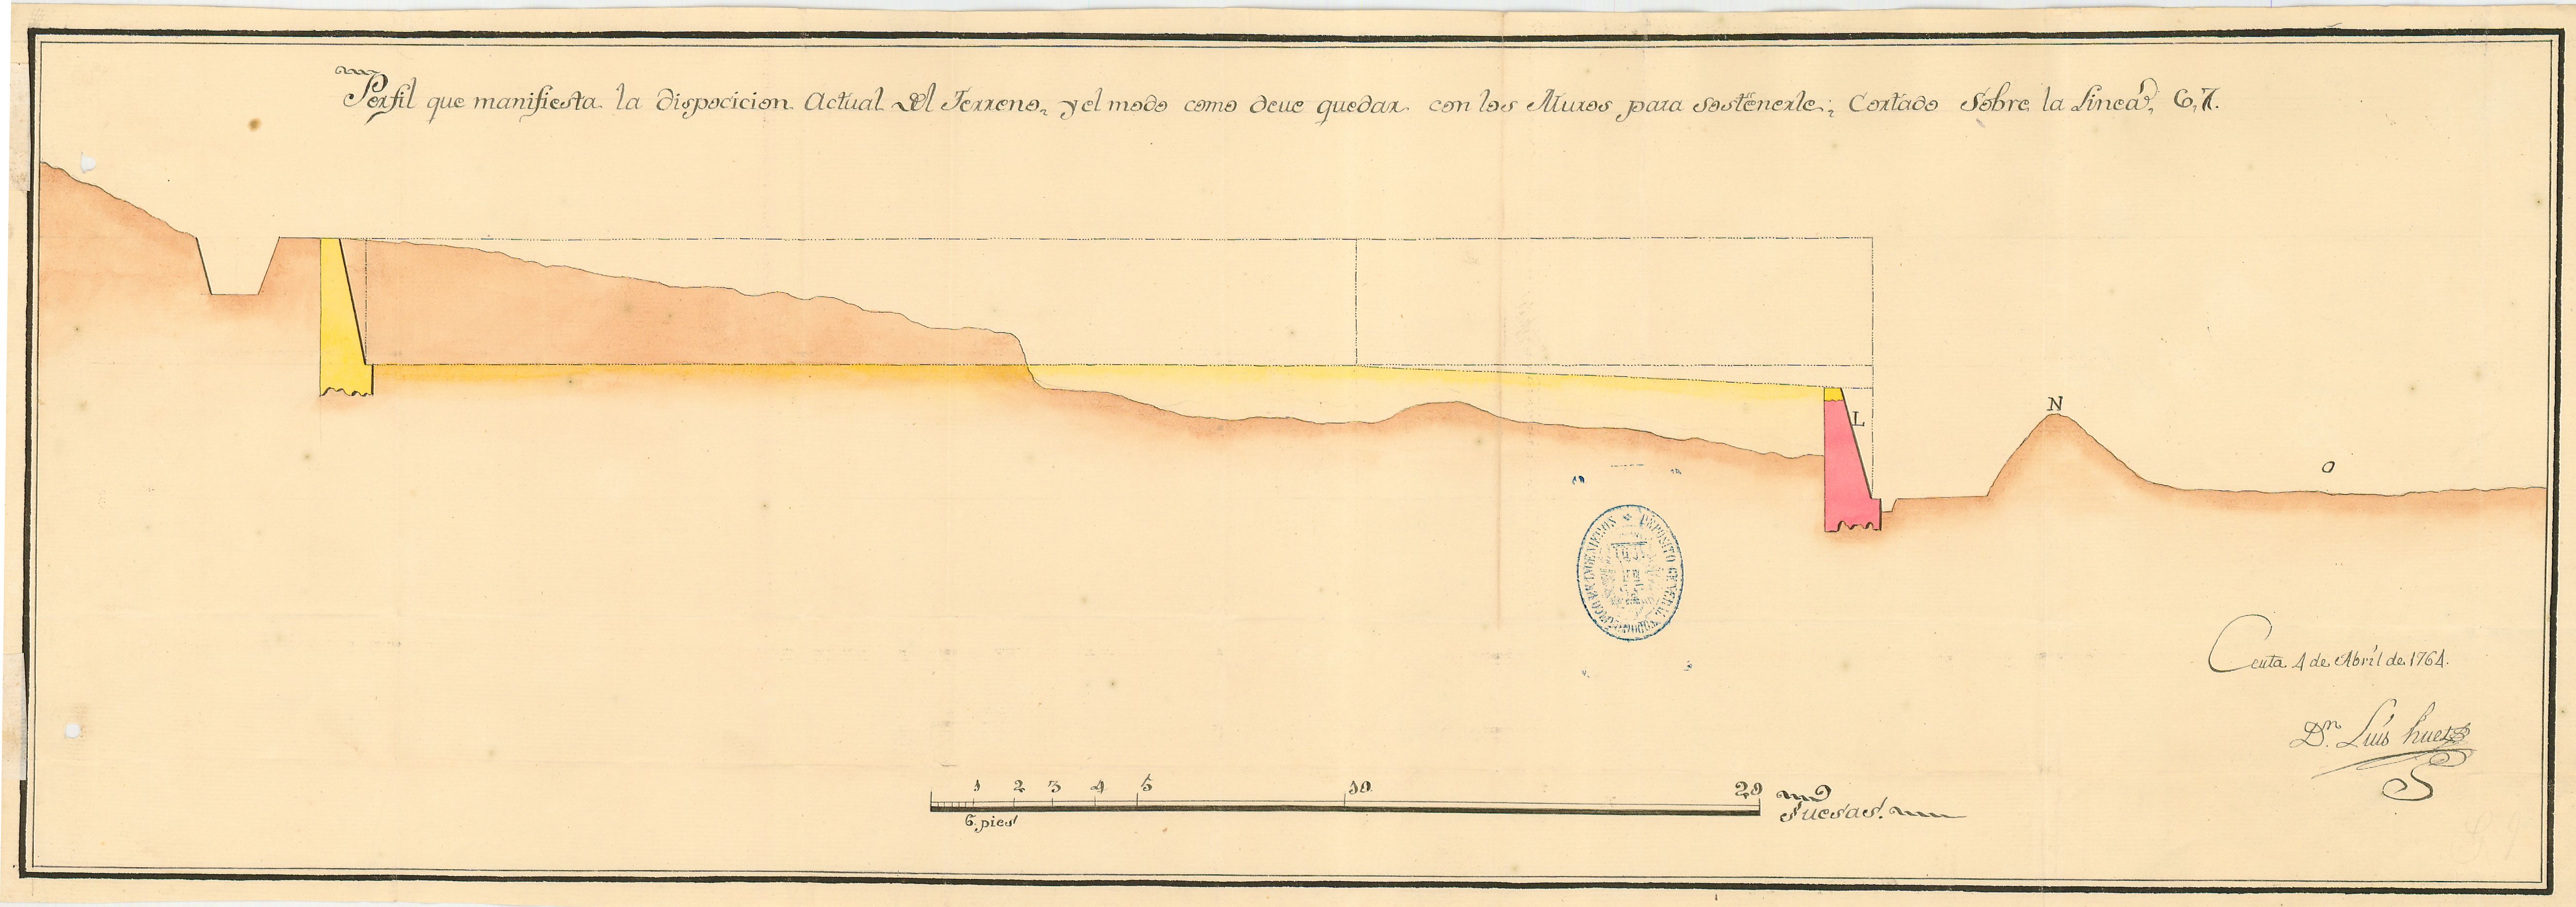 Perfil que manifiesta la dispocicion Actual del Terreno, y el modo como deve quedar con los Muros para sostenerle; Cortado Sobre la Linea, 6,7.
L
N
O
DEPOSITO GENERAL TOPOGRAFICO DE INGENIEROS
Ceuta 4 de Abril de 1764.
Dn. Luis huet
1 2 3 4 5 10 20
6. pies
Tuesas.